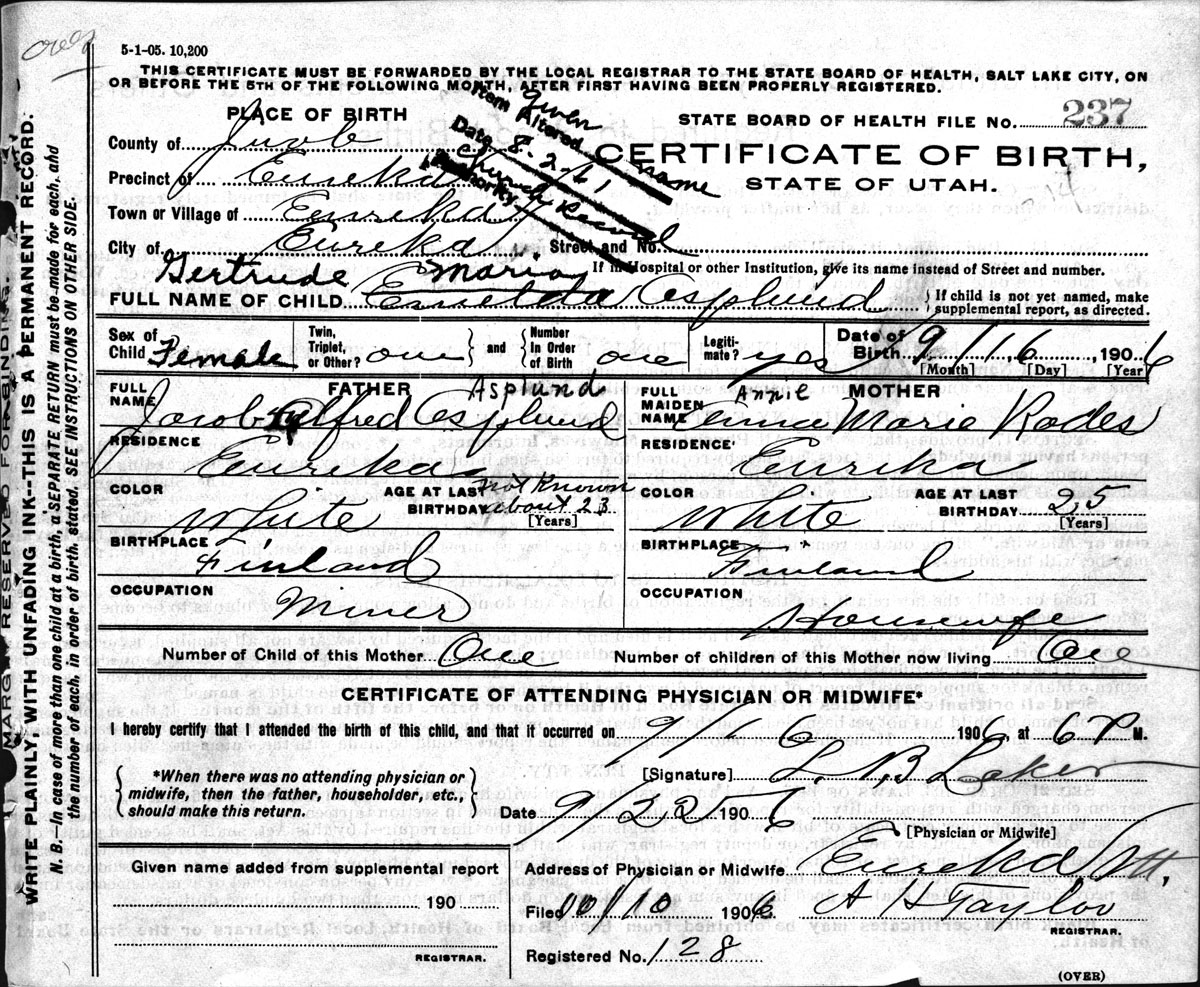 5-1-05. 10,200
THIS CERTIFICATE MUST BE FORWARDED BY THE LOCAL REGISTRAR TO THE STATE BOARD OF HEALTH, SALT LAKE CITY, ON
OR BEFORE THE 5TH OF THE FOLLOWING MONTH, AFTER FIRST HAVING BEEN PROPERLY REGISTERED.
PLACE OF BIRTH
County of Juab
Precinct of Eureka
Town or Village of Eureka
City of Eureka Street and No.
Item Altered Given name
Date 8-2-61
Authority Church Record
STATE BOARD OF HEALTH FILE NO. 237
CERTIFICATE OF BIRTH,
STATE OF UTAH.
If in Hospital or other Institution, give its name instead of Street and number.
Gertrude Maria
FULL NAME OF CHILD Esplund
If child is not yet named, make
supplemental report, as directed.
Sex of Child Female
Twin, Triplet, or Other? one and Number In Order of Birth one
Legitimate? yes
Date of Birth 9/16, 1906
[Month] [Day] [Year]
FATHER
Asplund
FULL NAME Jacob Alfred Esplund
RESIDENCE
Eureka
COLOR White
AGE AT LAST BIRTHDAY not Known about 25
[Years]
BIRTHPLACE
Finland
OCCUPATION
Miner
MOTHER
Annie
FULL MAIDEN NAME Anna Marie Rades
RESIDENCE
Eureka
COLOR White
AGE AT LAST BIRTHDAY 25
[Years]
BIRTHPLACE
Finland
OCCUPATION
Housewife
Number of Child of this Mother One
Number of children of this Mother now living One
CERTIFICATE OF ATTENDING PHYSICIAN OR MIDWIFE*
I hereby certify that I attended the birth of this child, and that it occurred on 9/16 1906 at 6 P M.
*When there was no attending physician or
midwife, then the father, householder, etc.,
should make this return.
[Signature]
Date 9/25 1906
[Physician or Midwife]
Given name added from supplemental report
190
REGISTRAR.
Address of Physician or Midwife Eureka Ut.
Filed 10/10 1906. A H Taylor
REGISTRAR.
Registered No. 128
(OVER)
MARGIN RESERVED FOR BINDING.
WRITE PLAINLY WITH UNFADING INK--THIS IS A PERMANENT RECORD.
N. B. In case of more than one child at a birth, a SEPARATE RETURN must be made for each, and
the number of each, in order of birth, stated. SEE INSTRUCTIONS ON OTHER SIDE.